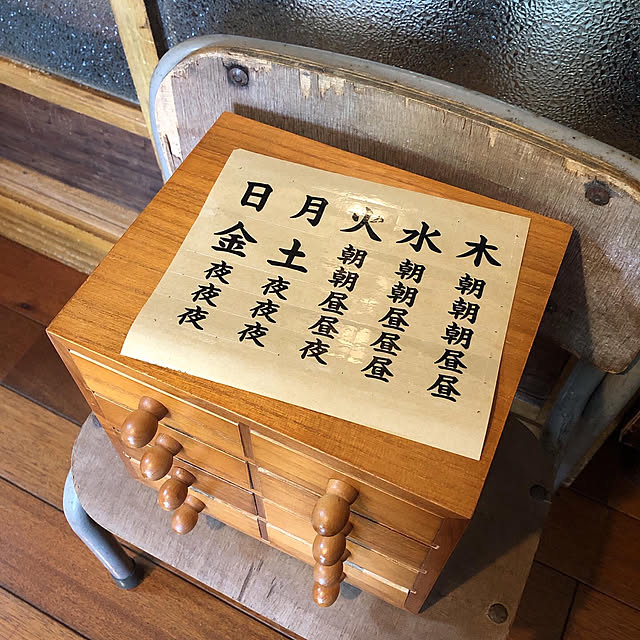 木朝朝朝昼昼
水朝朝昼昼昼
火朝朝昼昼夜
月土夜夜夜
日金夜夜夜